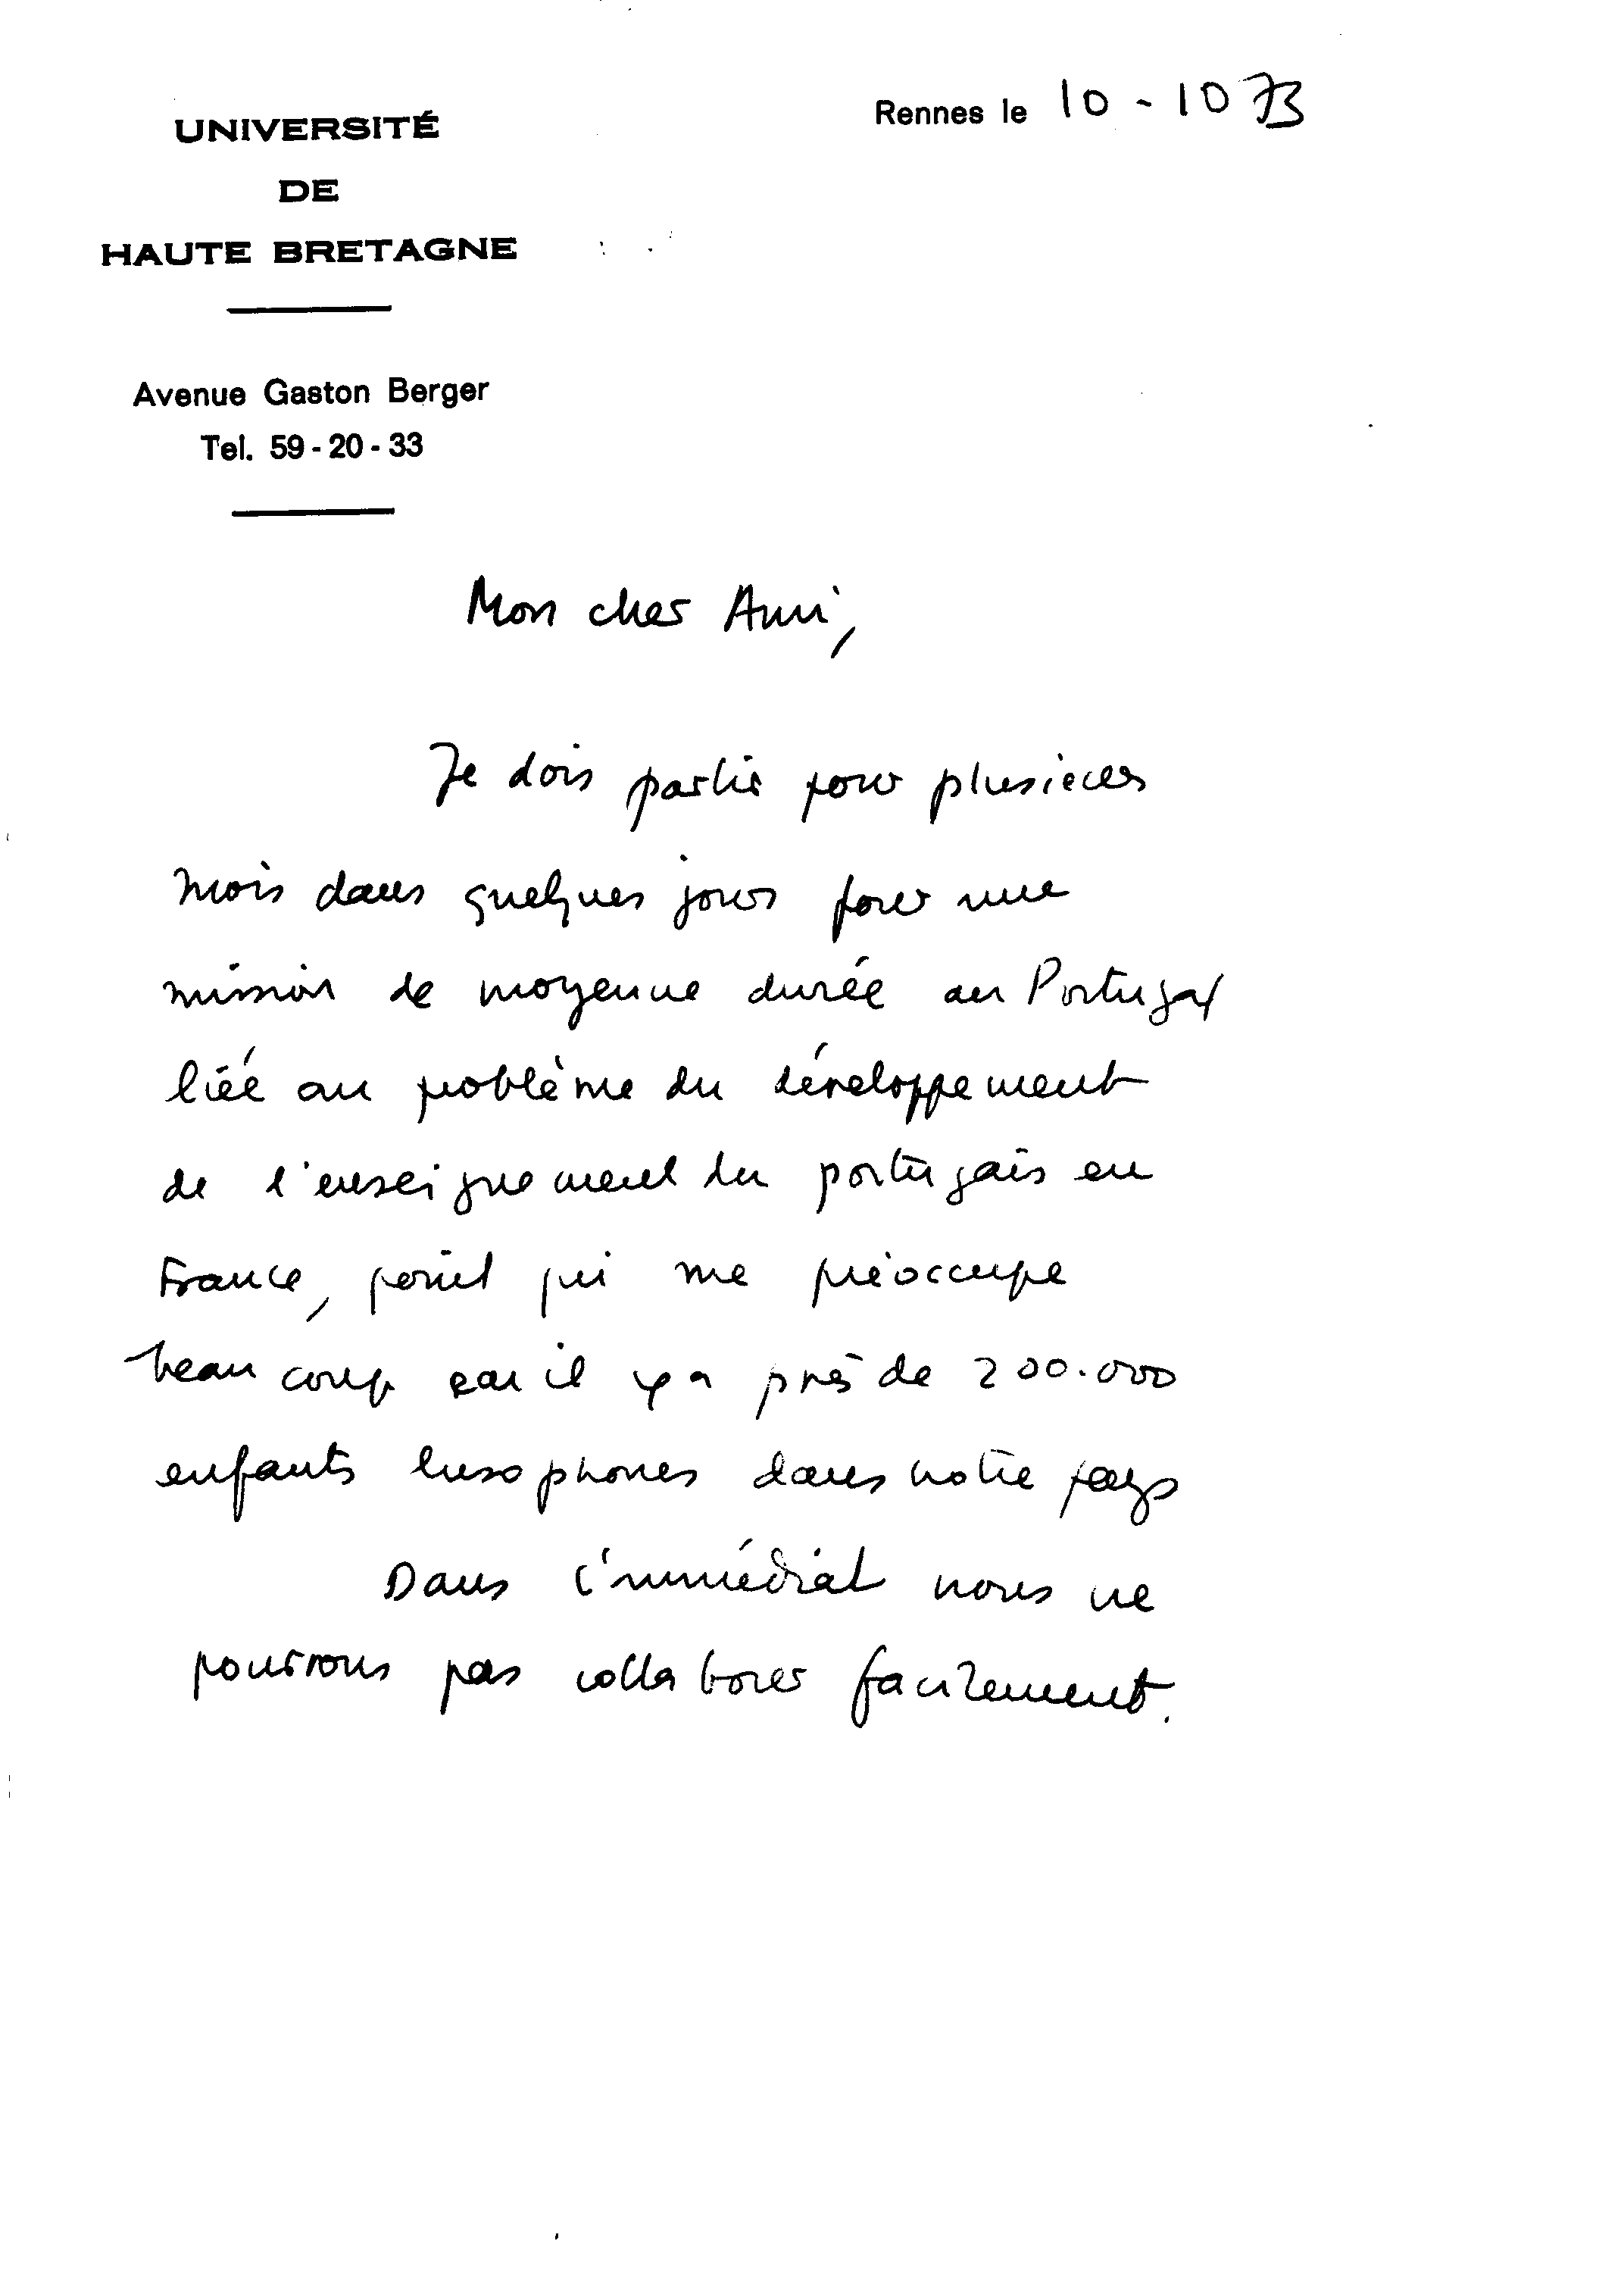 UNIVERSITÉ
DE
HAUTE BRETAGNE
Avenue Gaston Berger
Tel. 59-20-33
Rennes le 10-10 73
Mon cher Ami,
Je dois partir pour plusieurs
mois dans quelques jours pour une
mission de moyenne durée au Portugal
liée au problème du développement
de l'enseignement du portugais en
France, point qui me préoccupe
beaucoup car il y a près de 200.000
enfants lusophones dans notre pays
Dans l'immédiat nous ne
pourrons pas collaborer facilement.